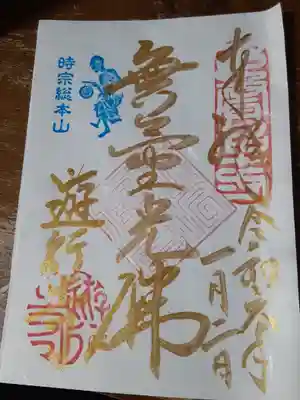 奉拝
令和六年
一月二日
無量光佛
時宗総本山
遊行寺